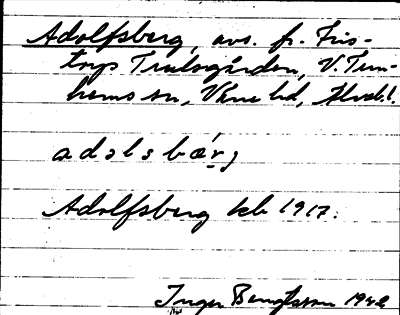 Adolfsberg, avs. fr. Fris-
torps Trulsgården, V. Tun-
hems sn, Väne hd, Älvsb. l.
adəlsbærj
Adolfsberg kb 1917.
Inger Bengtsson 1942